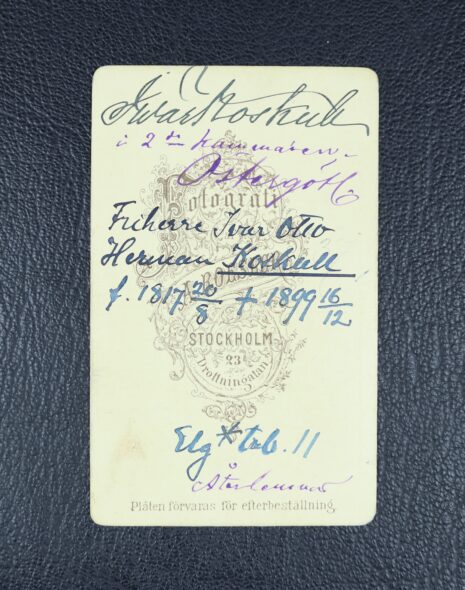 Ivar Koskull
i 2 dn kammaren,
Östergötl
Fotografi
Friherre Ivar Otto
Herman Koskull
f. 1817 20/8 † 1899 16/12
STOCKHOLM
23
Drottninggatan
Elg * tab. 11
Plåten förvaras för efterbeställning.